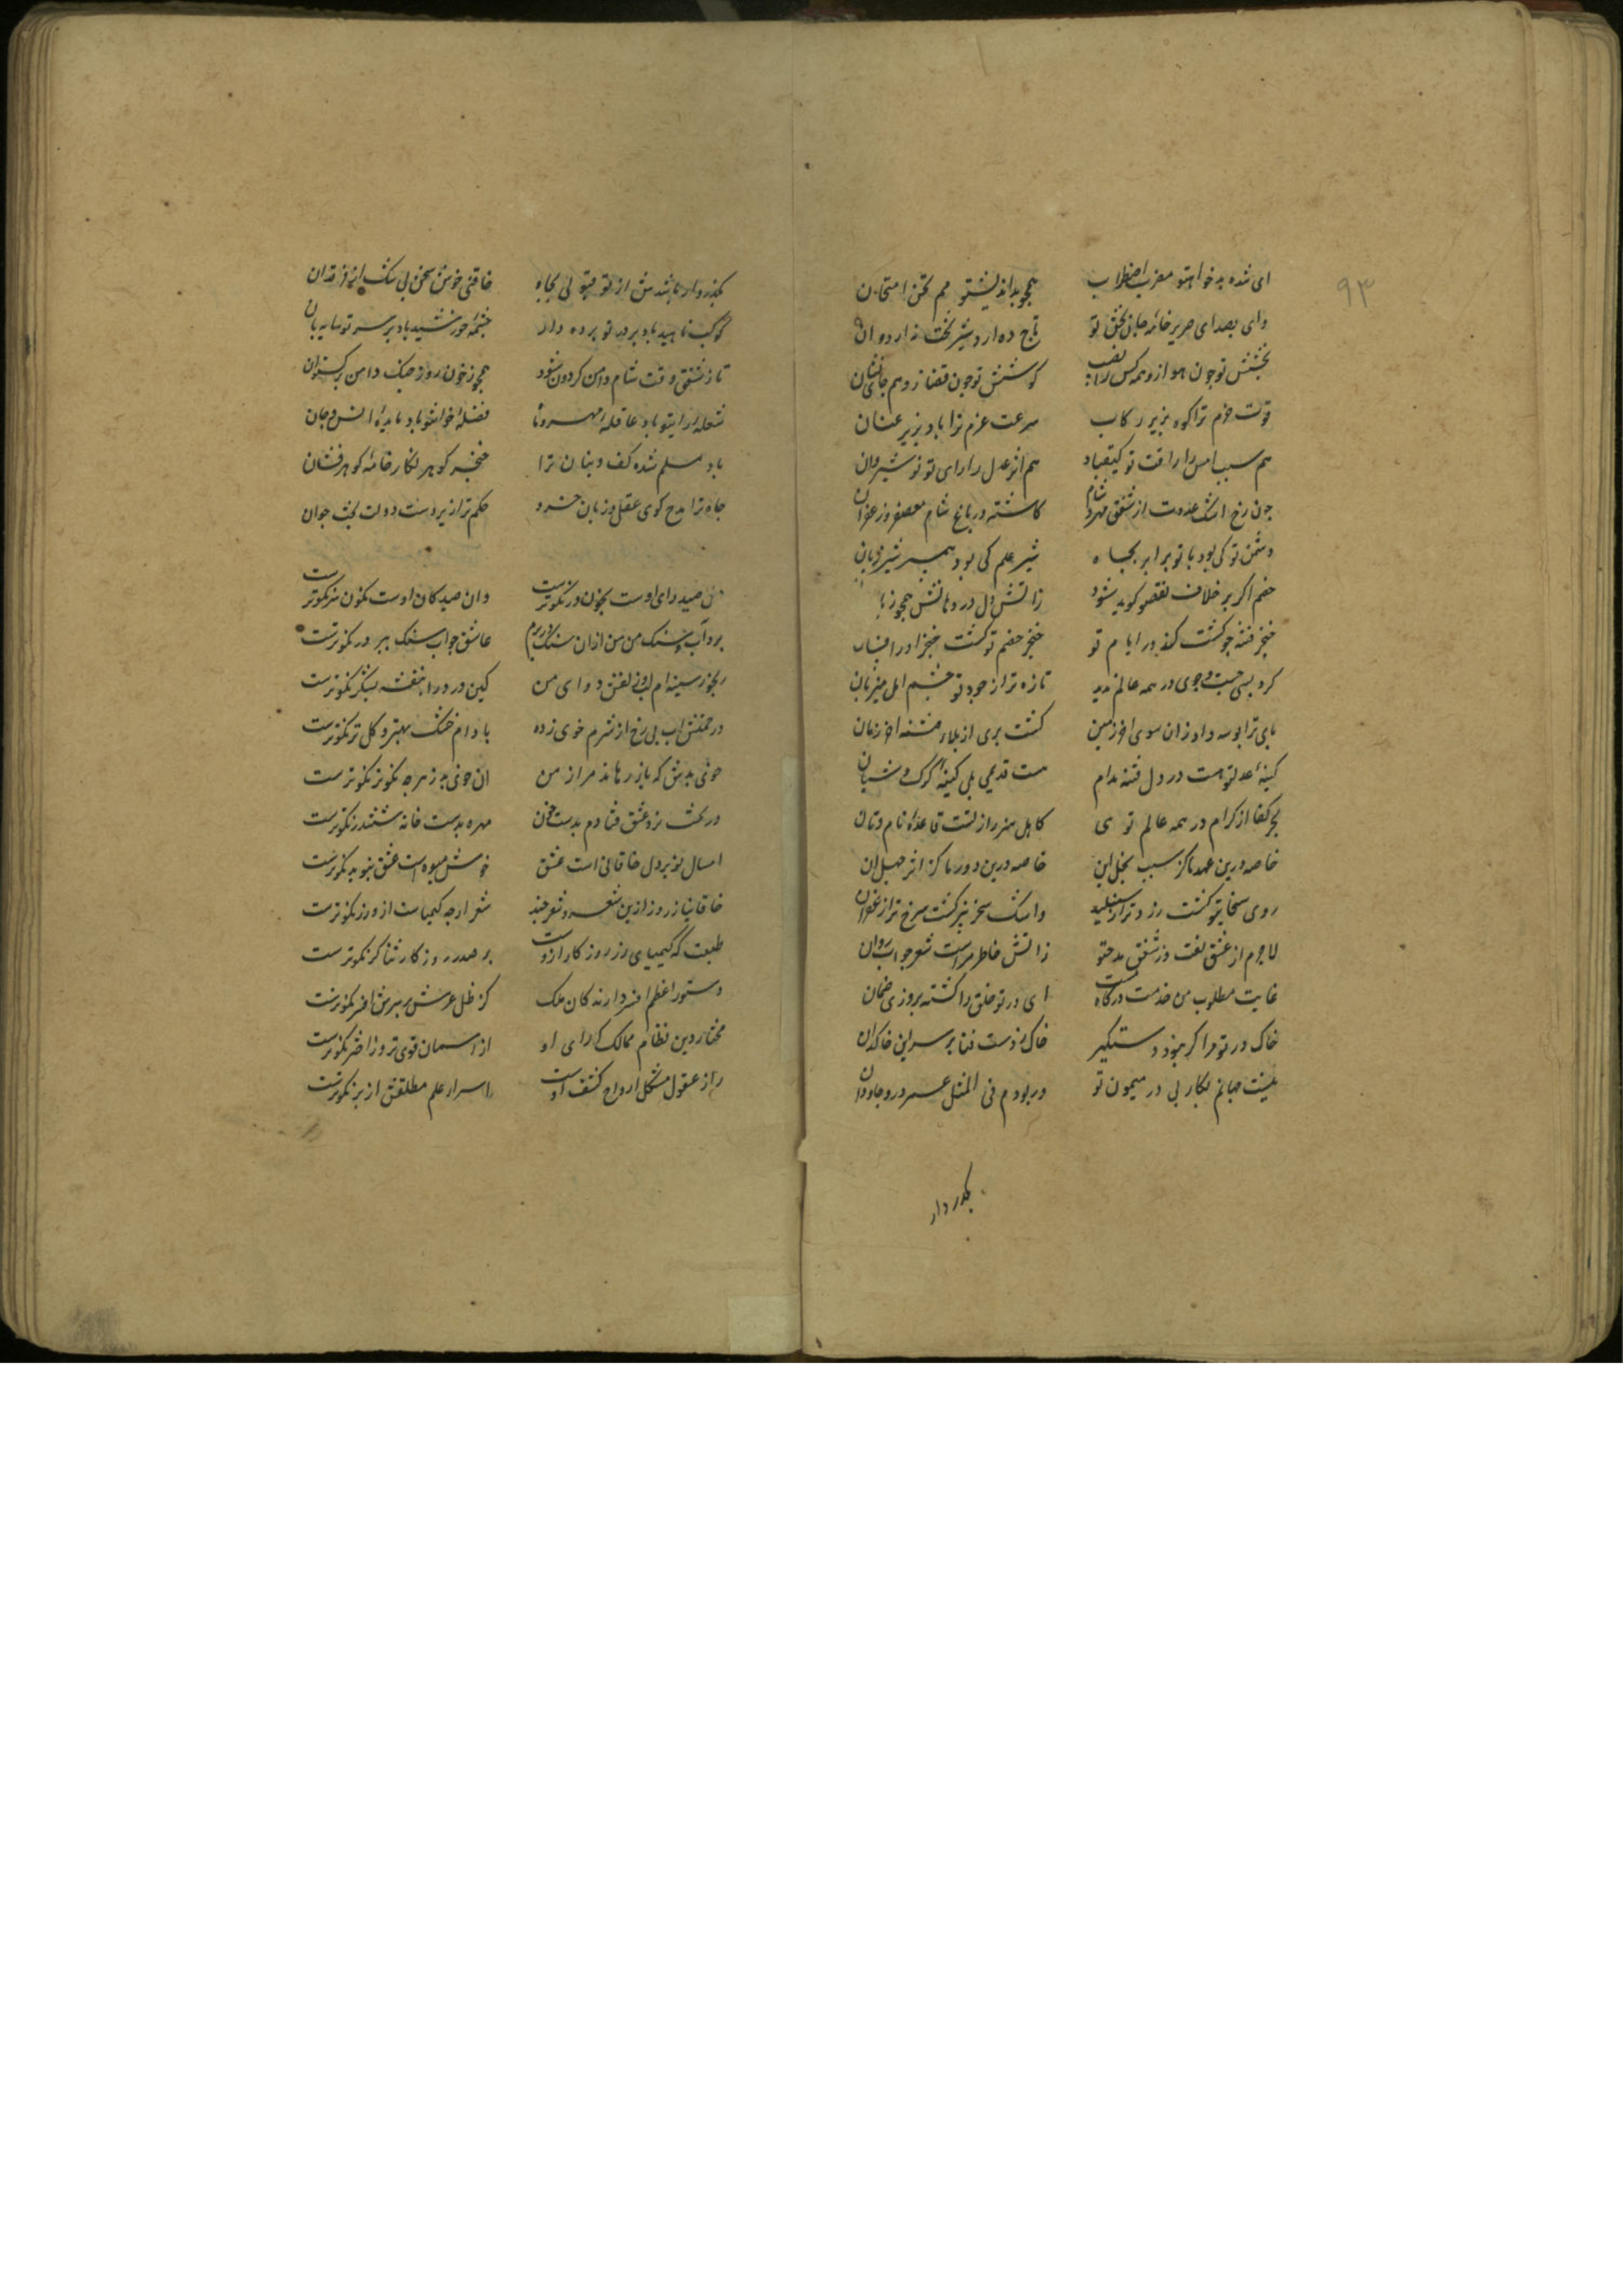 ۹۳
ای شده بدخواهتو مضرب اضطراب همچو بداندیشتو ممتحن امتحان
وای بصدای صریر خامه جان بخش تو تاج ده اردشیر تخت نه اردوان
بخشش تو چون هوا زو همه کس را نصیب کوشش تو چون قضا زو هم جای نشان
قوت حزم ترا کوه بزیر رکاب سرعت عزم ترا باد بزیر عنان
هم سبب امن را رافت تو کیقباد هم اثر عدل را رای تو نوشیروان
چون رخ اشک عدوت از شفق مهر شام کاشته در باغ شام معصفر و زعفران
دشمن تو کی بود با تو برابر بجاه شیر علم کی بود همبر شیر ژیان
خصم اگر بر خلاف نقص تو کوید شود زاتش دل در دهانش همچو زبانه
خنجر فتنه چو کشت کند در ایام تو خنجر خصم تو کشت خنجر او را فسان
کرد بسی جست و جوی در همه عالم ندید تازه تر از جود تو چشم امل میزبان
پای ترا بوسه داد زان سوی آخر زمین کشت بری از بلا فتنه آخر زمان
کینهٔ عدلتو هست در دل فتنه مدام هست قدیمی بلی کینهٔ کرک و شبان
بحر کفا از کرام در همه عالم توی کاهل هنر راز تست قاعدهٔ نام و نان
خاصه درین عهد ما کز سبب بخل این خاصه درین دور ما کز اثر جهل آن
روی سخا بتو کشت زرد تر از شنبلید واشک سخن نیز کشت سرخ تر از ارغوان
لاجرم از عشق نعت وز شفق مدحتو زاتش خاطر مراست شعر چو آب روان
غایت مطلوب من خدمت درکاه تست ای در تو خلق را کشته بروزی ضمان
خاک در تو مرا کر نبود دستکیر خاک ز دست فنا بر سر این خاکدان
نیست جهانم بکار بی در میمون تو ور بودم فی المثل عمر درو جاودان
بگذر دار
بگذر و ار باشدش از تو قبولی بجاه خاقنی خوش سخن بی شک از فرقدان
کوکب ناهید باد بر در تو پرده دار چشمهٔ خورشید باد بر سر تو سایه بان
تا ز شفق وقت شام دامن کردون شود همچو ز خون روز جنک دامن برکستوان
شعلهٔ رایتو باد عاقلهٔ مهر و ماه فضلهٔ خوانتو باد مایدهٔ انس و جان
باد مسلم شده کف و بنان ترا خنجر کوهر نکار خامهٔ کوهر فشان
جاه ترا مدح کوی عقل و زبان خرد حکم ترا زیر دست دولت بخت جوان
صید وای اوست بخون در نکوترست وان صید کان اوست نکون سر نکوترست
برد آب سنک من من ازان سنک در برم عاشق چو آب سنک ببر در نکوترست
رنجور سینه ام لب و زلفش دوای من کین درد را بنفشه بشکر نکوترست
در خمشش آب بی رخ از شرم خوی زده بادام خشک بهتر و کل تر نکوترست
خوئی بدش که باز رهاند مرا ز من آن خوی بد ز هر چه نکوتر نکوترست
در تخت نرد عشق فتادم بدست خون مهره بدست خانه ششدر نکوترست
امسال نوبر دل خاقانی است عشق خوش میوه است عشق بنوبر نکوترست
خاقانیا ز روز ازین شعر و شعر چند شعر ارچه کیمیاست از و زر نکوترست
طبعت که کیمیای زر روزکار ازوست بر صدر روزکار ثناکر نکوترست
دستور اعظم افسر دارندکان ملک کز ظل عرش بر سرش افسر نکوترست
مختار دین نظام ممالک که رای او از آسمان قوی تر و ز اختر نکوترست
راز عقول مشکل ارواح کشف اوست اسرار علم مطلقش از بر نکوترست